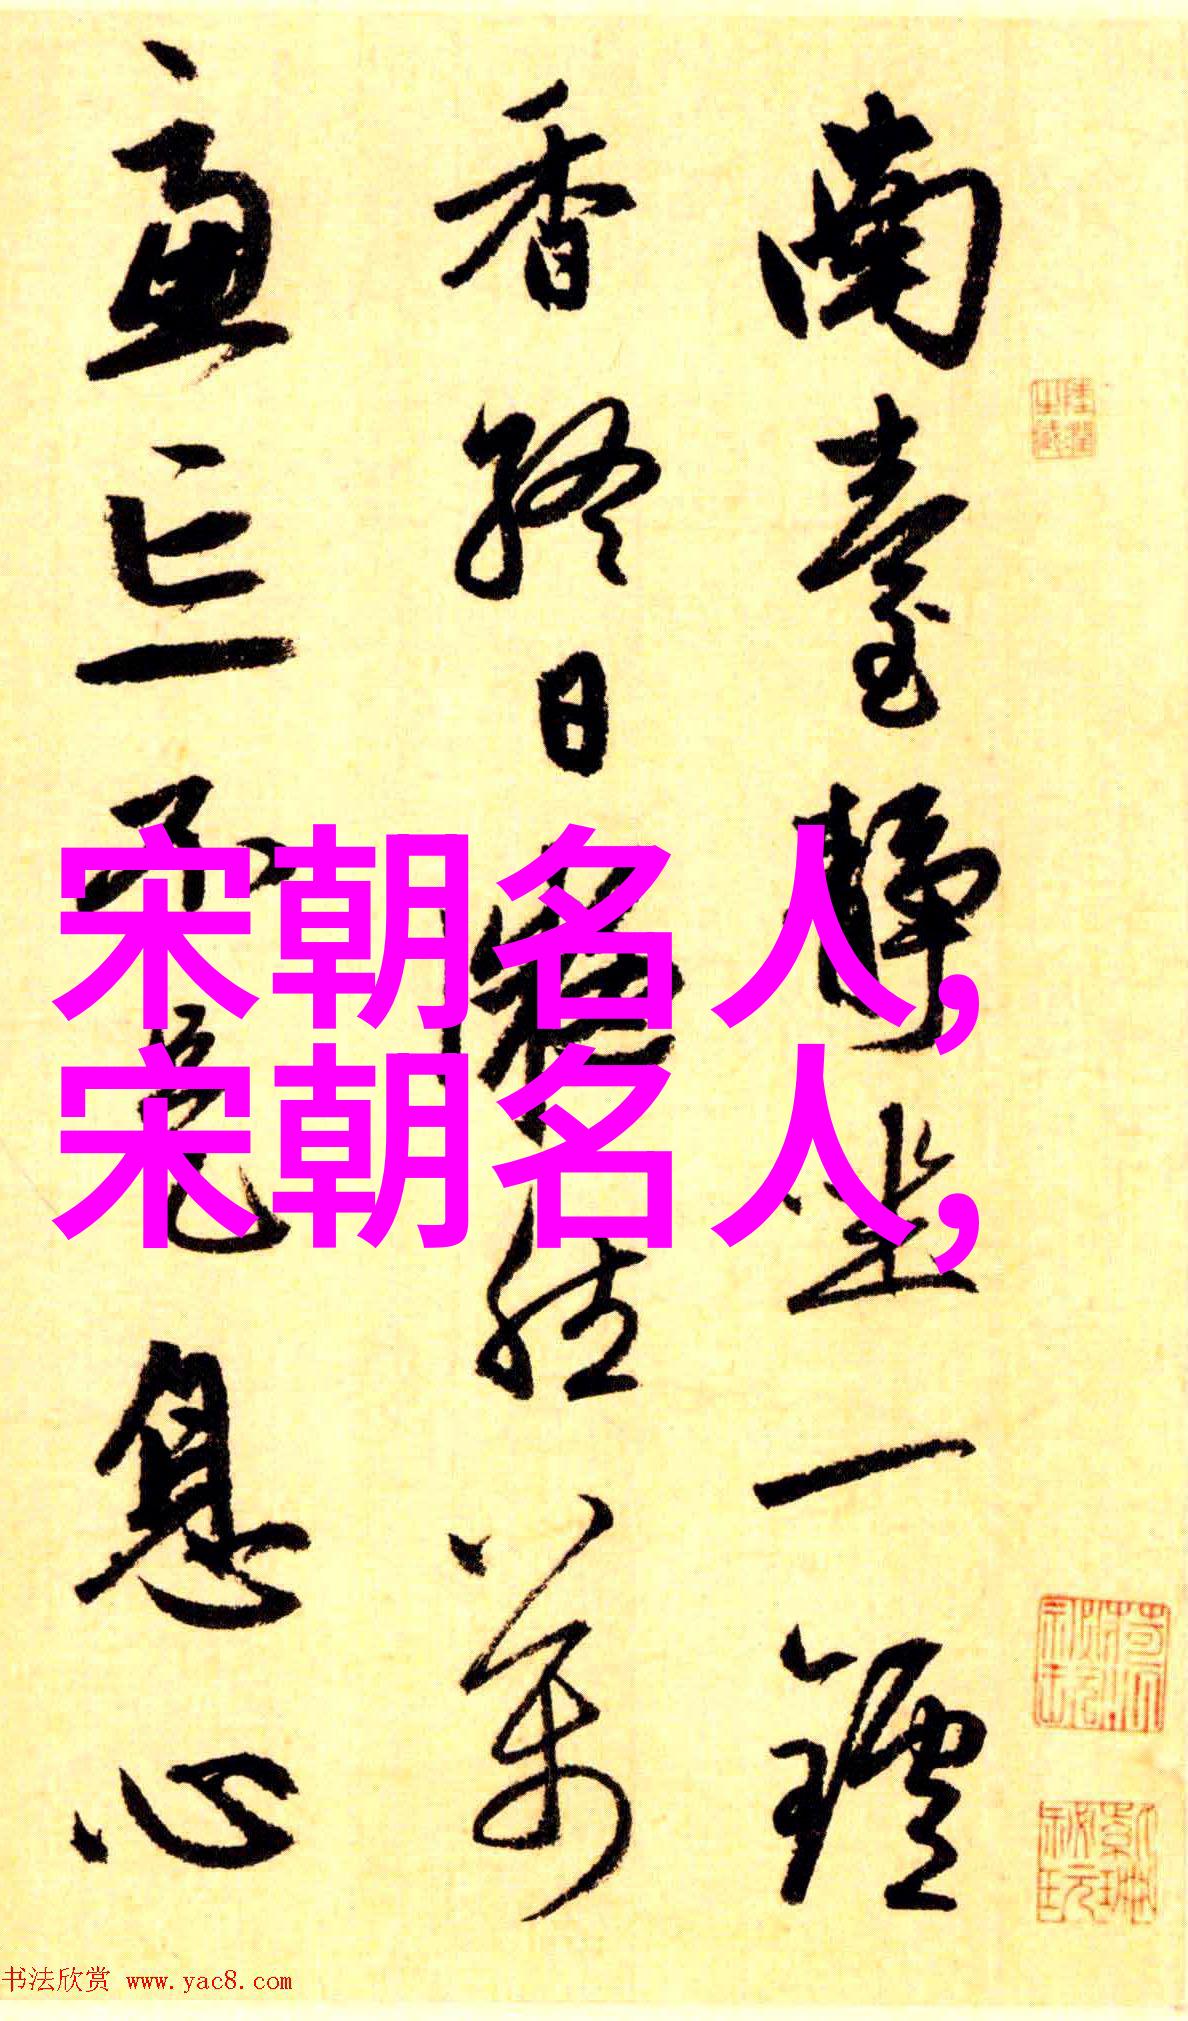 南臺靜坐一鑪
香終日凝然萬
慮忘不是息心
宋朝名人,
宋朝名人,
书法欣赏 www.yac8.com